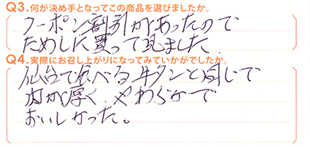 Q3.何が決め手となってこの商品を選びましたか。
クーポン割引があったので
ためしに買って見ました。
Q4.実際にお召し上がりになってみていかがでしたか。
仙台で食べる牛タンと同じで
肉が厚く、やわらかで
おいしかった。